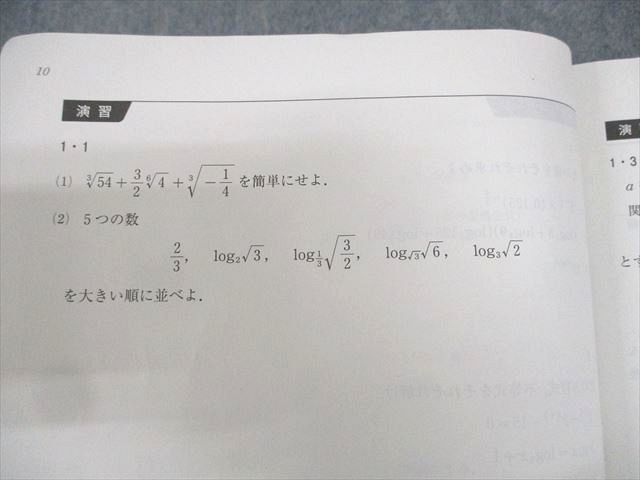 10
演習
1・1
(1) ∛54 + 3/2 ⁶√4 + ∛(-1/4) を簡単にせよ.
(2) 5つの数
2/3, log₂√3, log_{1/3}√(3/2), log_{√3}√6, log₃√2
を大きい順に並べよ.
演
1・3
a
関
とす